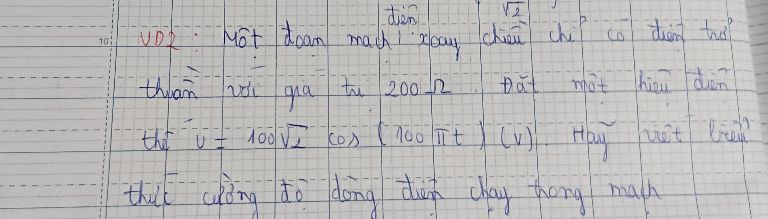 √2
VD2: Một đoạn mạch điện xoay chiều chỉ có điện trở
thuần với giá trị 200 Ω. Đặt một hiệu điện
thế u = 100√2 cos (100 πt) (V). Hãy viết biểu
thức cường độ dòng điện chạy trong mạch